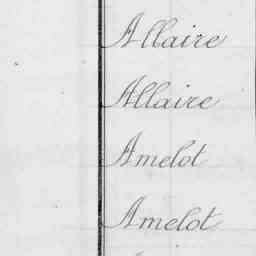 Allaire
Allaire
Amelot
Amelot